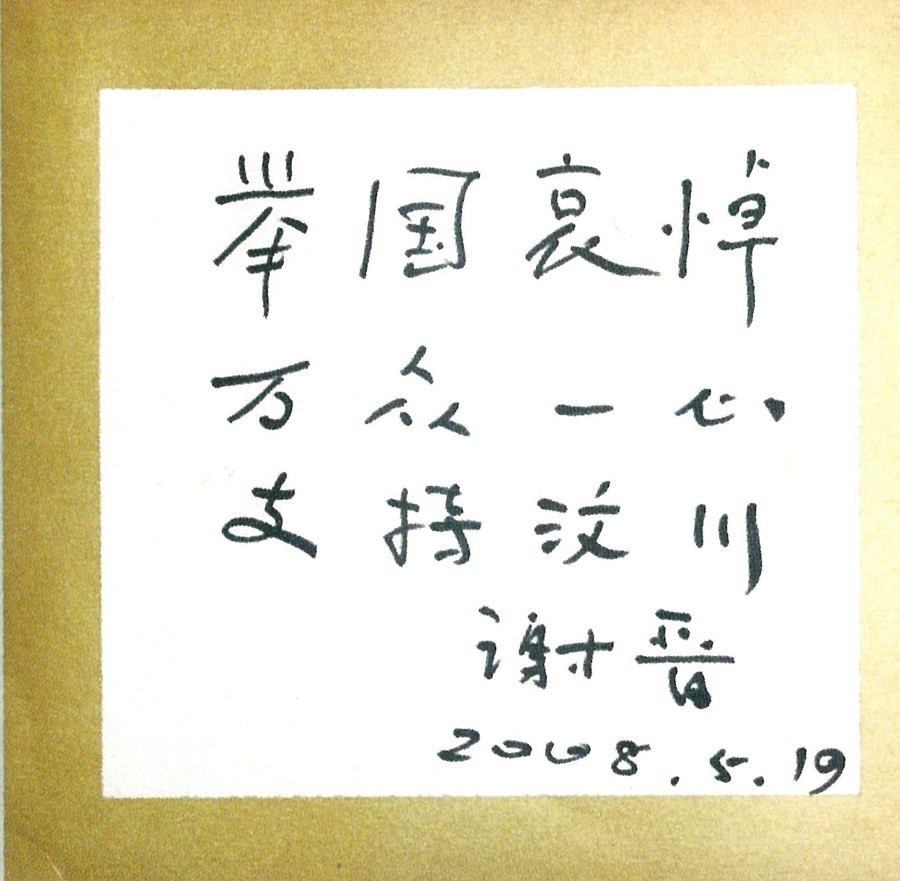 举国哀悼
万众一心
支持汶川
谢晋
2008.5.19